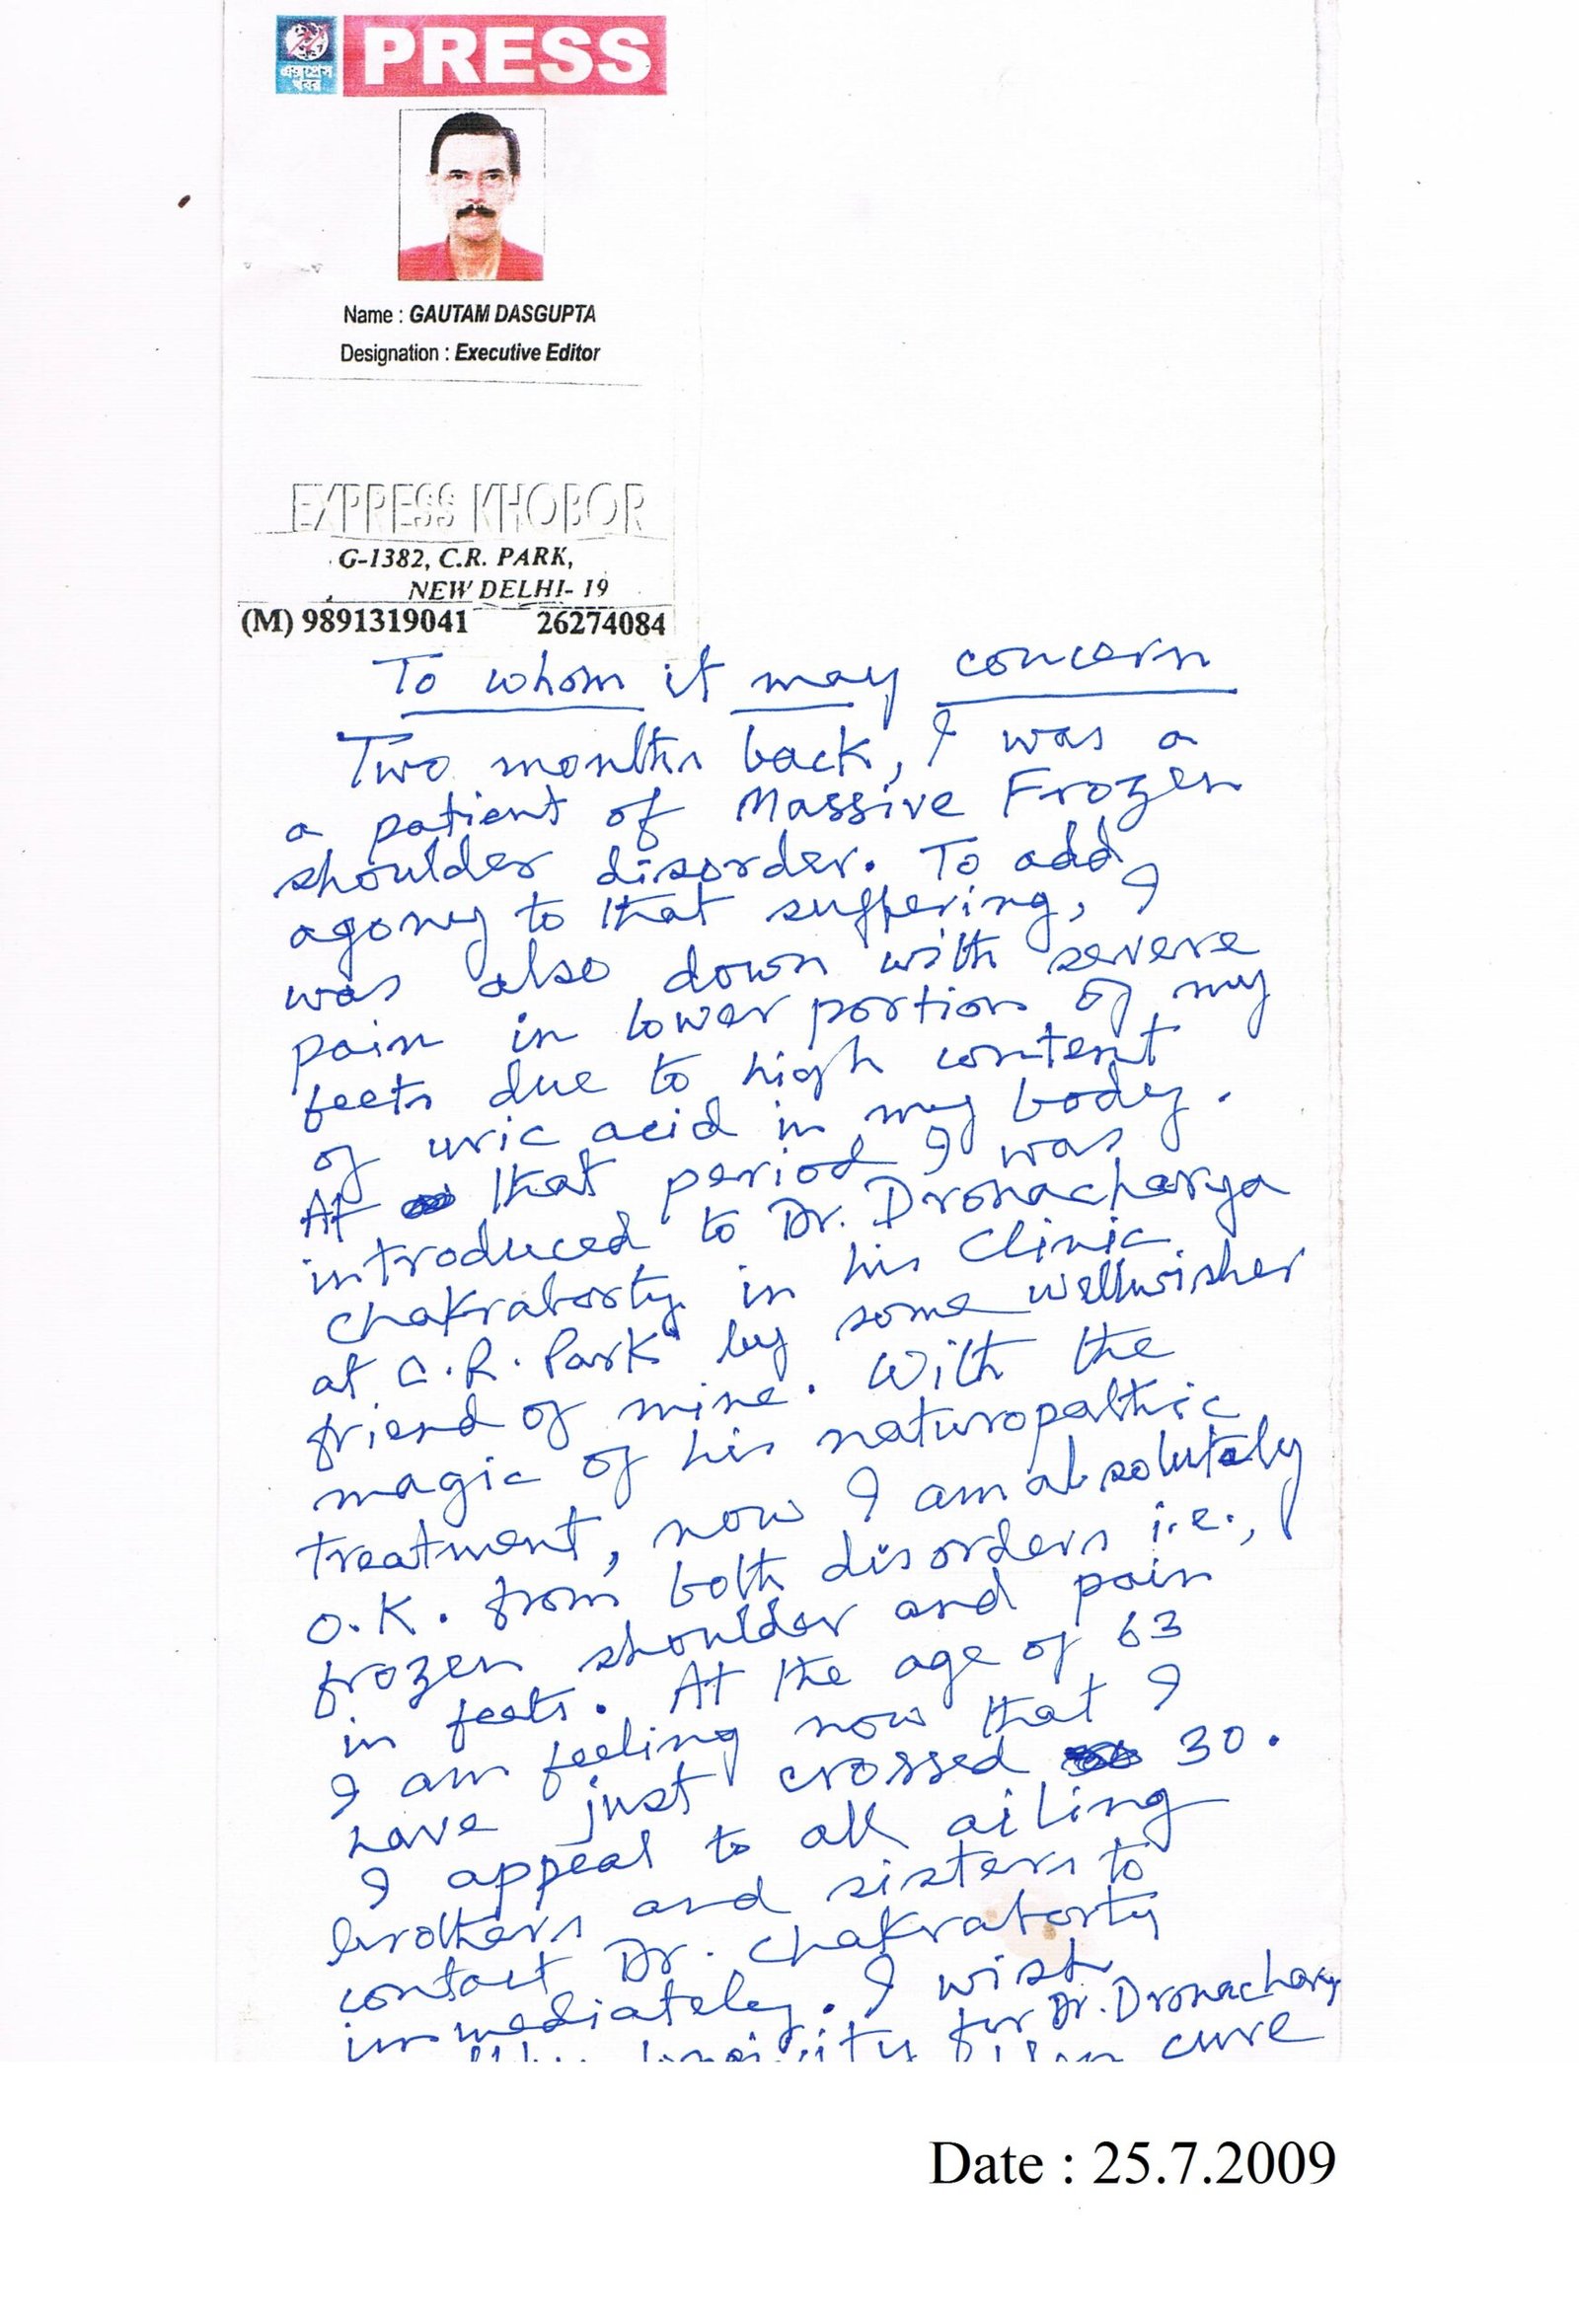 এক্সপ্রেস
খবর
PRESS
Name : GAUTAM DASGUPTA
Designation : Executive Editor
EXPRESS KHOBOR
G-1382, C.R. PARK,
NEW DELHI- 19
(M) 9891319041 26274084
To whom it may concern
Two months back, I was a
a patient of Massive Frozen
shoulder disorder. To add
agony to that suffering, I
was also down with severe
pain in lower portion of my
feets due to high content
of uric acid in my body.
At that period I was
introduced to Dr. Dronacharya
Chakraborty in his Clinic
at C.R. Park by some wellwisher
friend of mine. With the
magic of his naturopathic
treatment, now I am absolutely
O.K. from both disorders i.e.,
frozen shoulder and pain
in feets. At the age of 63
I am feeling now that I
have just crossed 30.
I appeal to all ailing
brothers and sisters to
contact Dr. Chakraborty
immediately. I wish
for Dr. Dronachary
cure
Date : 25.7.2009